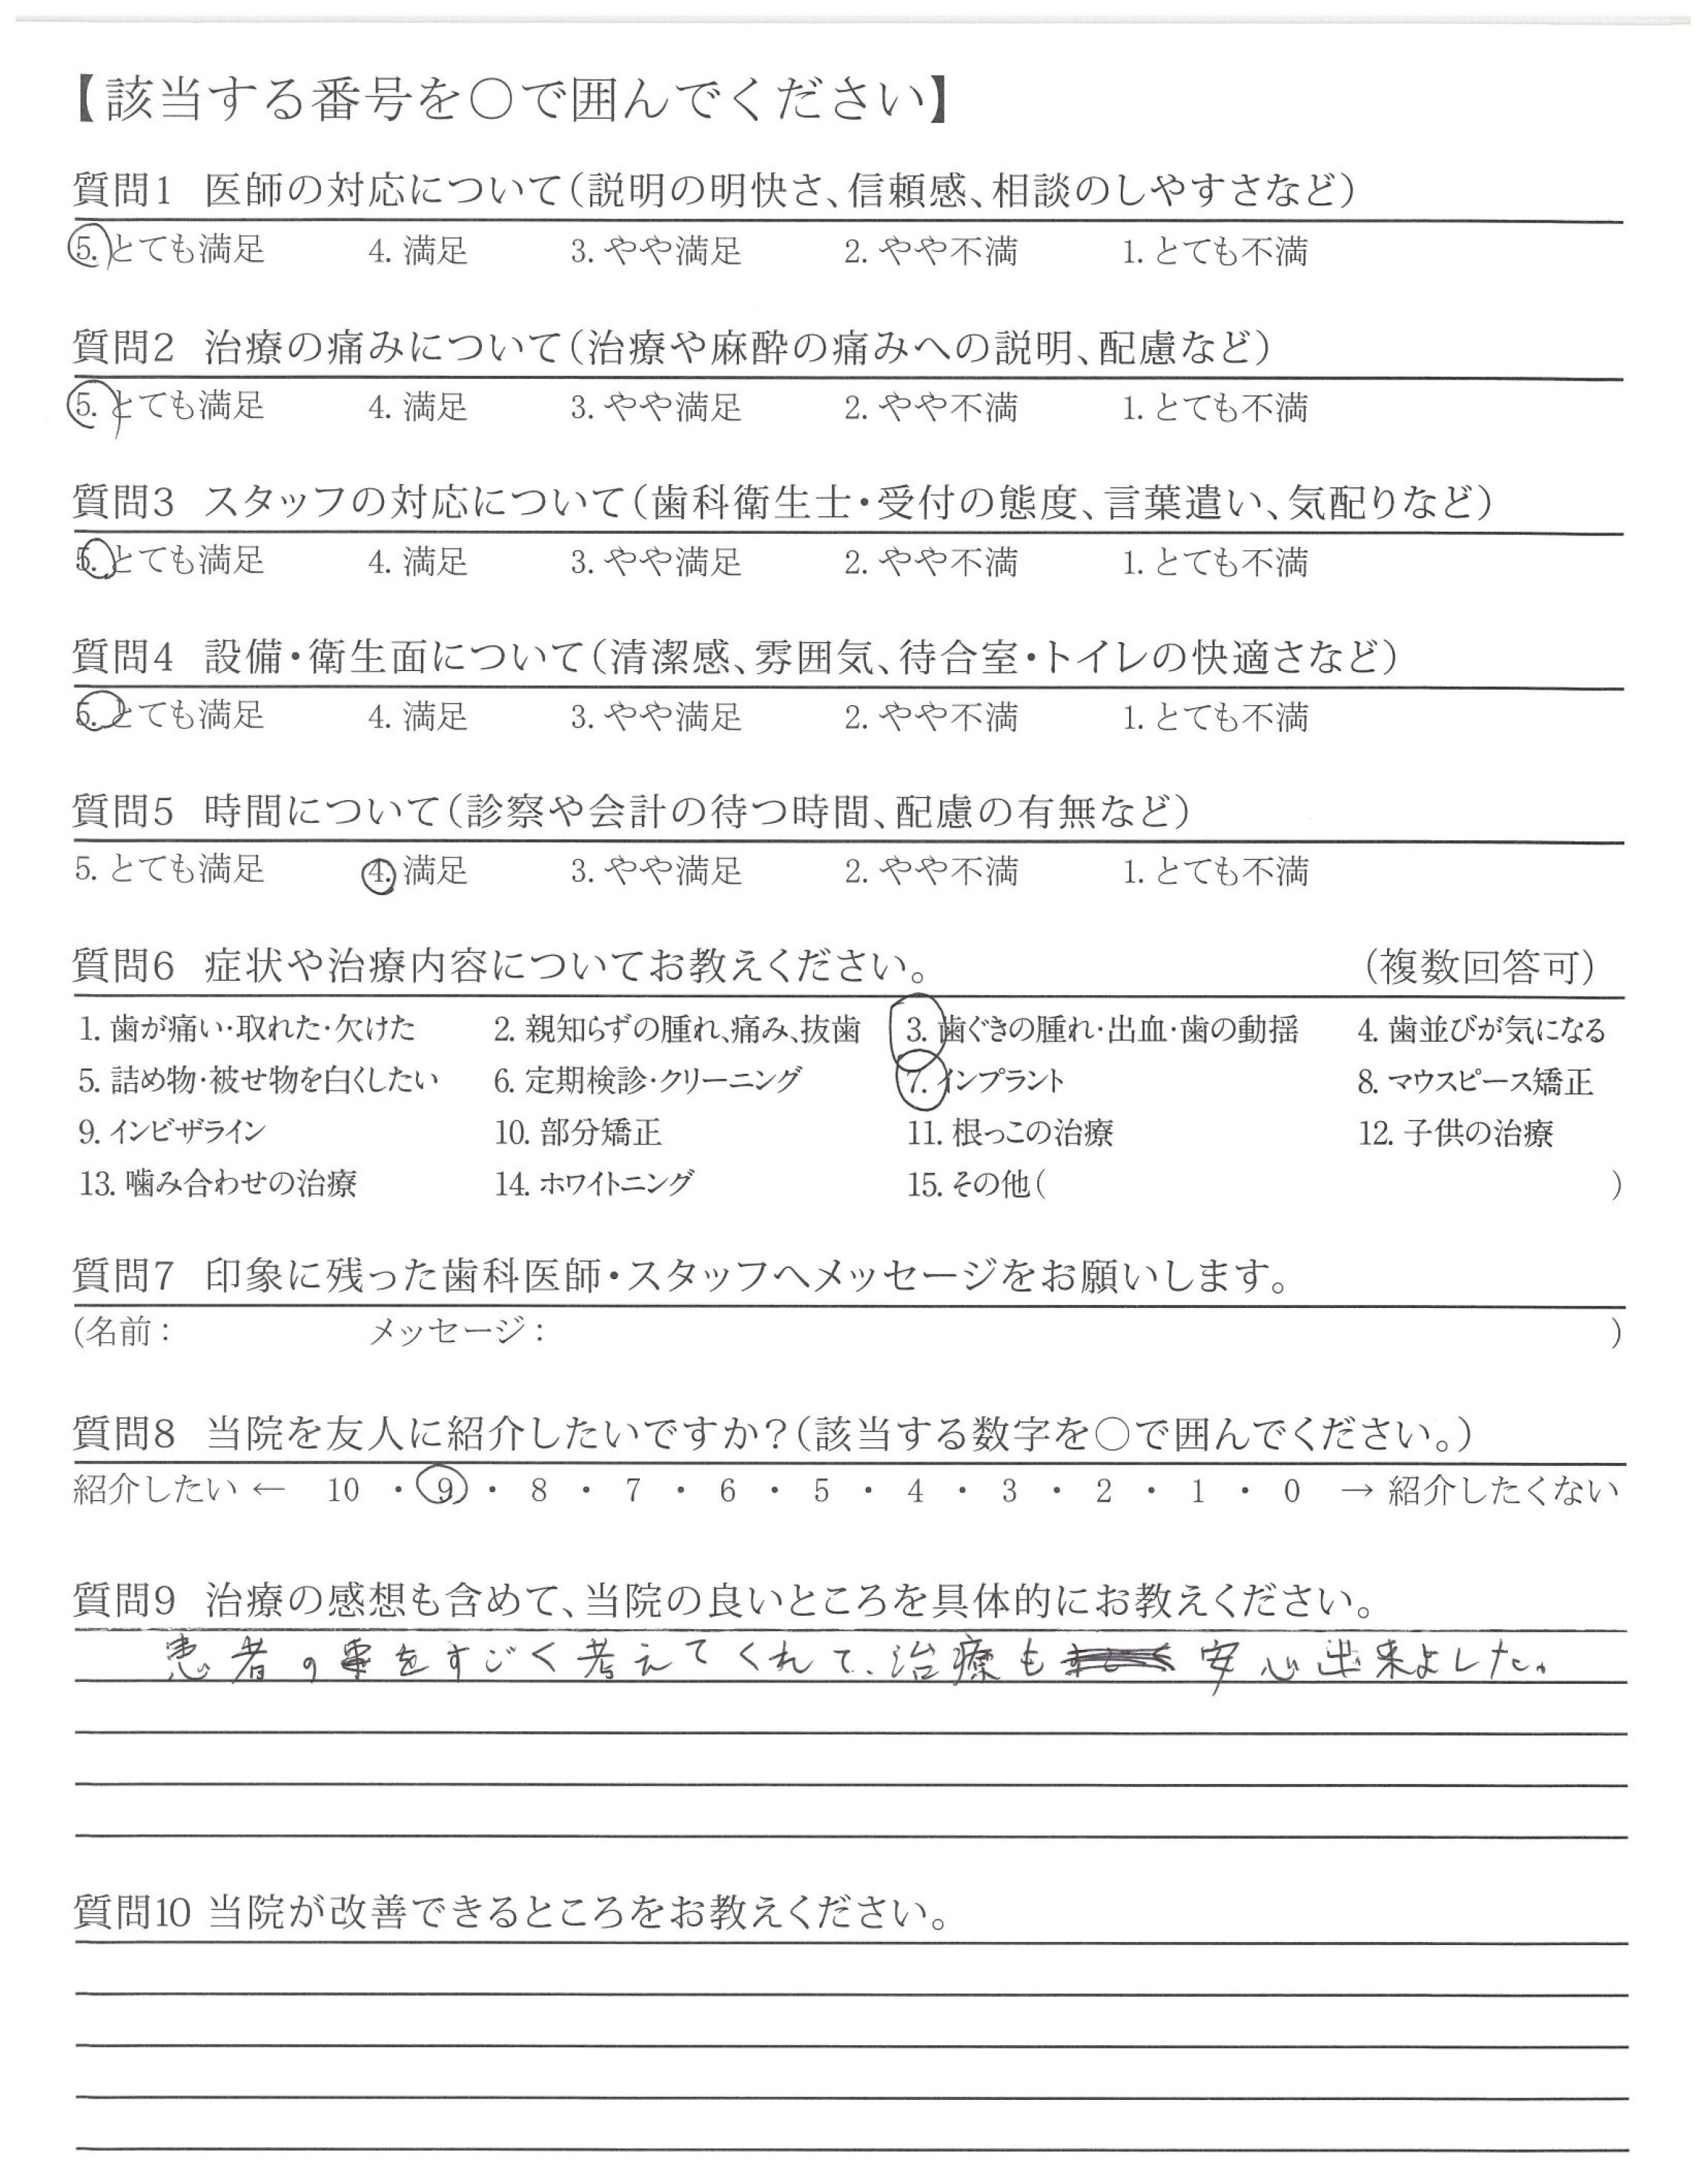 【該当する番号を○で囲んでください】
質問1 医師の対応について(説明の明快さ、信頼感、相談のしやすさなど)
5. とても満足 4. 満足 3. やや満足 2. やや不満 1. とても不満
質問2 治療の痛みについて(治療や麻酔の痛みへの説明、配慮など)
5. とても満足 4. 満足 3. やや満足 2. やや不満 1. とても不満
質問3 スタッフの対応について(歯科衛生士・受付の態度、言葉遣い、気配りなど)
5. とても満足 4. 満足 3. やや満足 2. やや不満 1. とても不満
質問4 設備・衛生面について(清潔感、雰囲気、待合室・トイレの快適さなど)
5. とても満足 4. 満足 3. やや満足 2. やや不満 1. とても不満
質問5 時間について(診察や会計の待つ時間、配慮の有無など)
5. とても満足 4. 満足 3. やや満足 2. やや不満 1. とても不満
質問6 症状や治療内容についてお教えください。 (複数回答可)
1. 歯が痛い・取れた・欠けた 2. 親知らずの腫れ、痛み、抜歯 3. 歯ぐきの腫れ・出血・歯の動揺 4. 歯並びが気になる
5. 詰め物・被せ物を白くしたい 6. 定期検診・クリーニング 7. インプラント 8. マウスピース矯正
9. インビザライン 10. 部分矯正 11. 根っこの治療 12. 子供の治療
13. 噛み合わせの治療 14. ホワイトニング 15. その他( )
質問7 印象に残った歯科医師・スタッフへメッセージをお願いします。
(名前: メッセージ: )
質問8 当院を友人に紹介したいですか?(該当する数字を○で囲んでください。)
紹介したい ← 10 ・ 9 ・ 8 ・ 7 ・ 6 ・ 5 ・ 4 ・ 3 ・ 2 ・ 1 ・ 0 → 紹介したくない
質問9 治療の感想も含めて、当院の良いところを具体的にお教えください。
患者の事をすごく考えてくれて、治療も安心出来ました。
質問10 当院が改善できるところをお教えください。